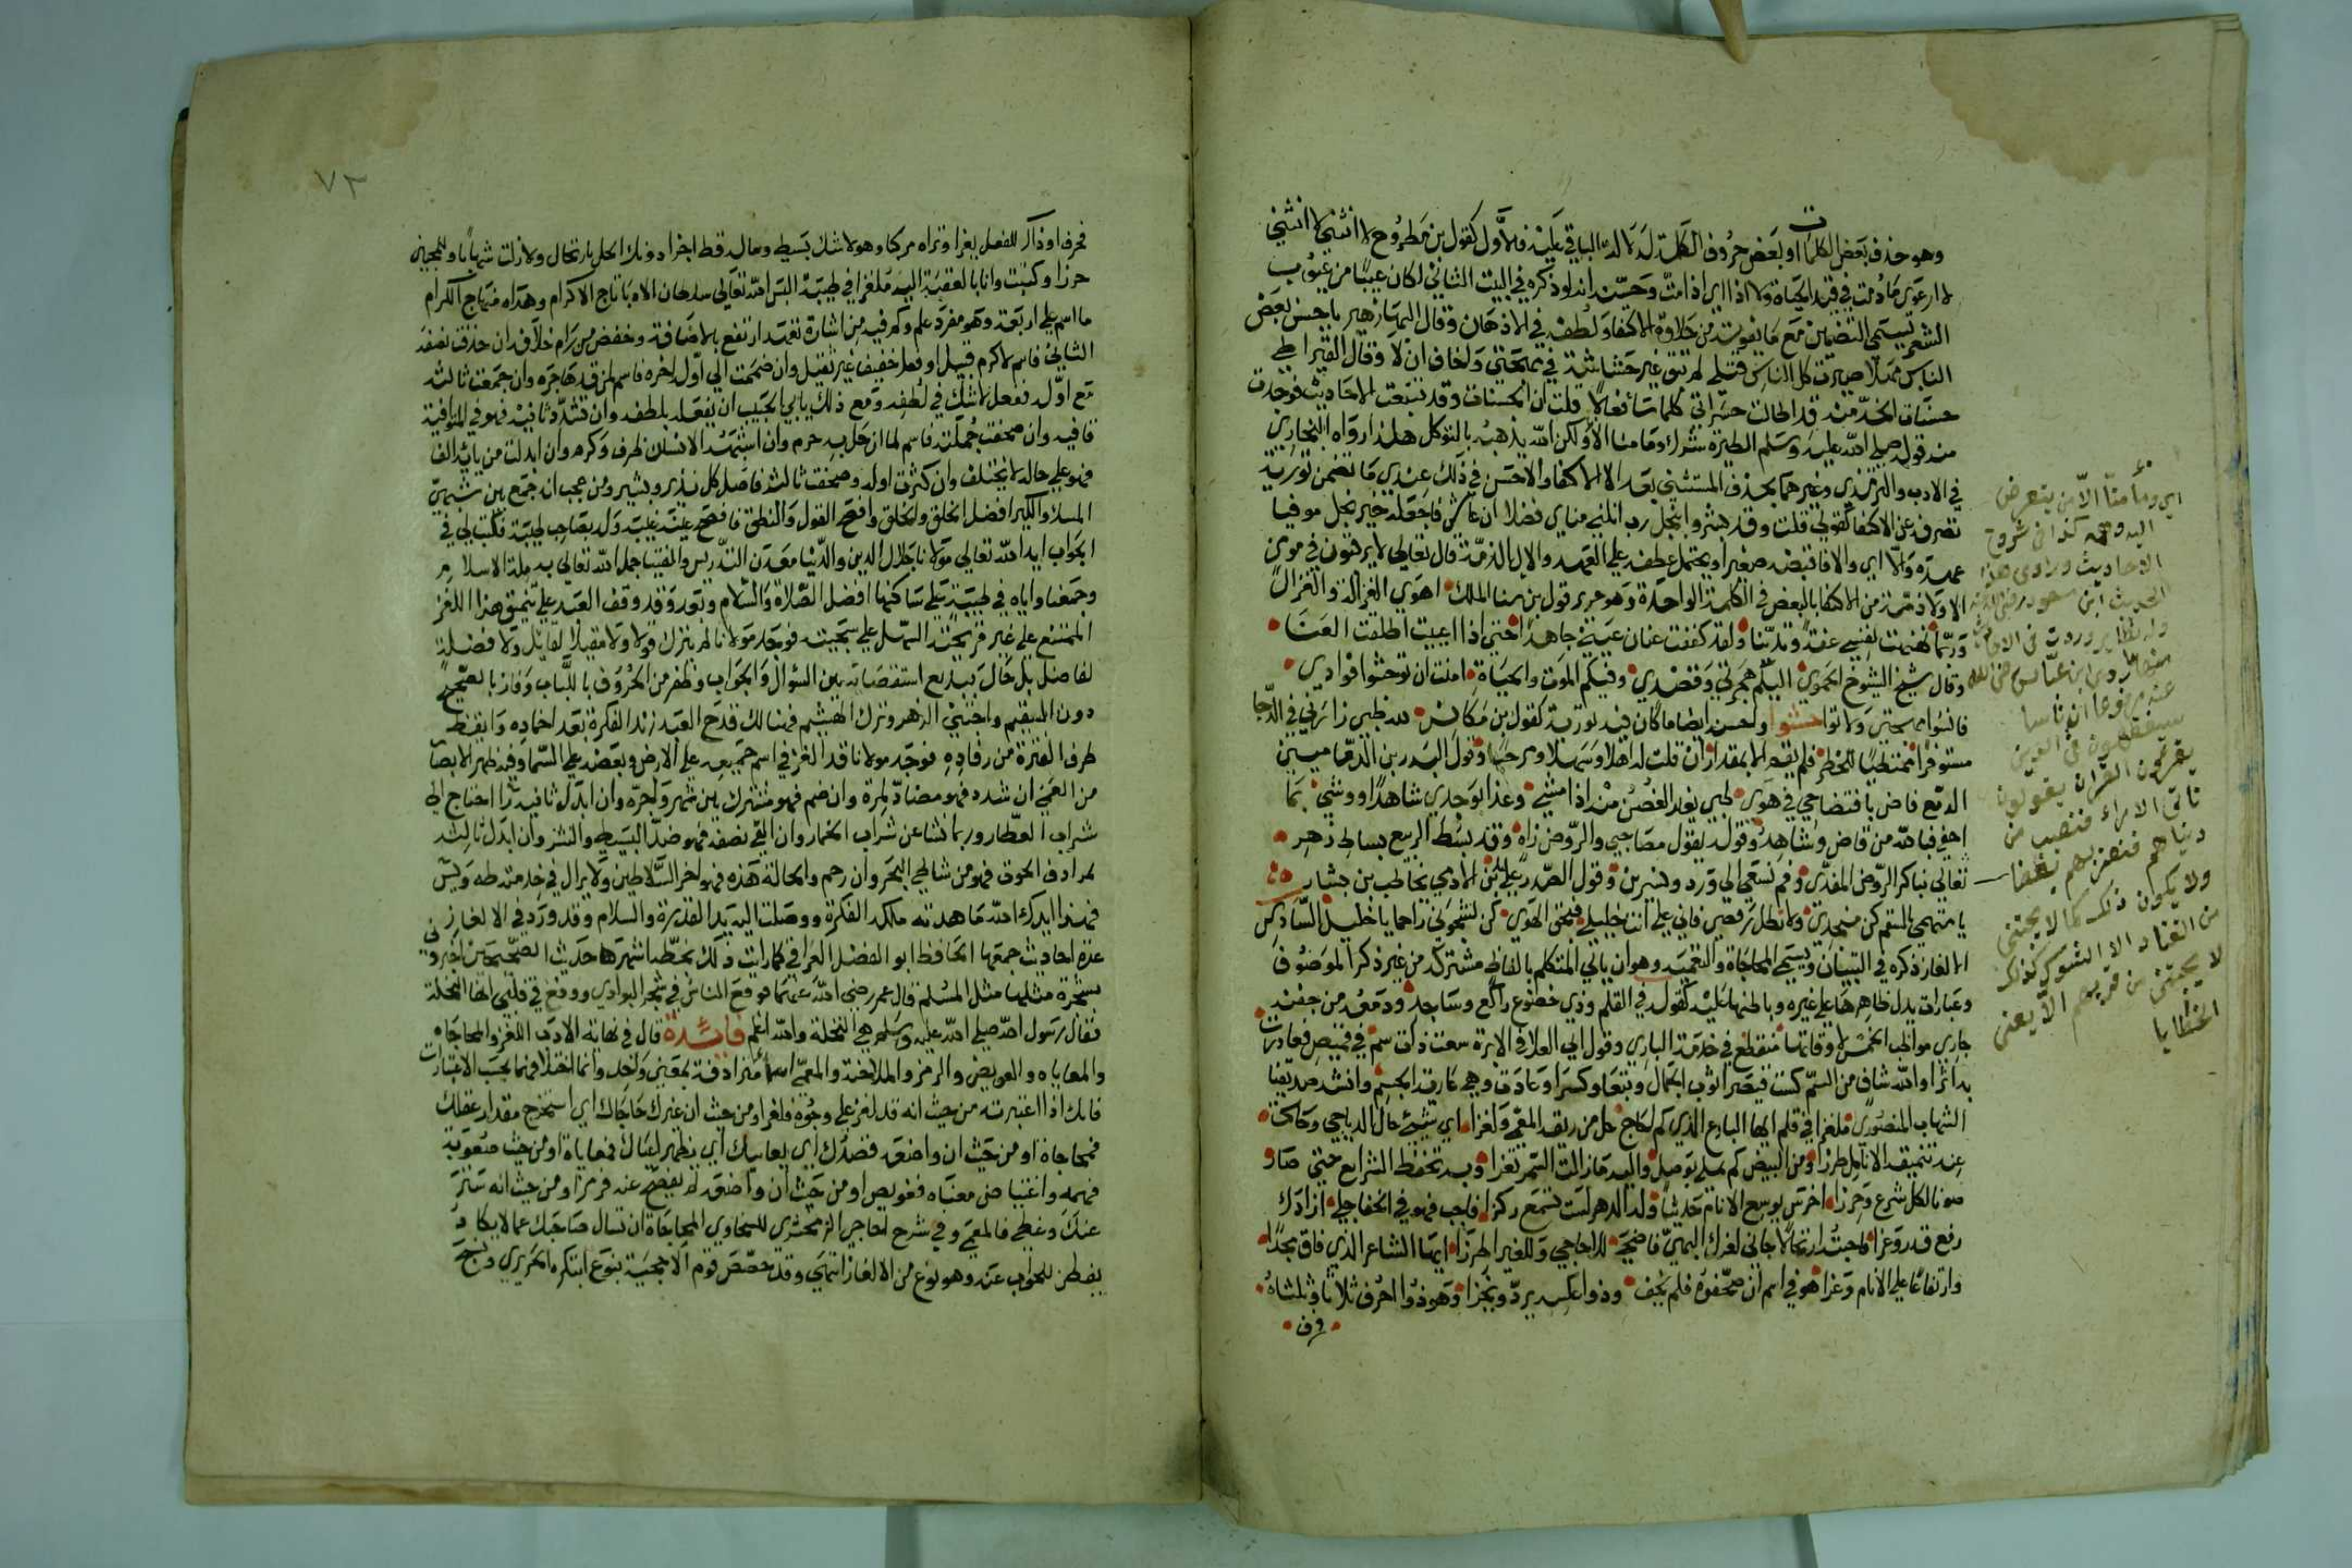 وهو حذف بعض الكلمات او بعض حروف الكلمة لدلالة الباقي عليه فالاول كقول بن مطروح لا انتهي لا انثني
لا ارعوي ما دمت في قيد الحياة ولا اذا اي اذا مت وحسنه انه لو ذكره في البيت الثاني لكان عيبا من عيوب
الشعر يسمي التضمين مع ما يفوت من حلاوة الاكتفا ولطفه في الاذهان وقال البها زهير يا حسن بعض
الناس مهلا صيرت كل الناس قتلي لم تبق غير حشاشة في مهجتي واخاف ان لا وقال القيراطي
حسنات الخد منه قد اطالت حسراتي كلما سا فعالا قلت ان الحسنات وقد تتبعت الاحاديث فوجدت
منه قوله صلي الله عليه وسلم الطيرة شرك وما منا الا ولكن الله يذهبه بالتوكل هكذا رواه البخاري
في الادب والترمذي وغيرهما بحذف المستثني بعد الا الاكتفا والاحسن في ذلك عندي ما تضمن تورية
تصرف عن الاكتفا كقولي قلت وقد بشر وابنجل رب انلني مناي فضلا ان عاش فاجعله خير نجل موفيا
عهده والا اي والا فاقبضه صغيرا ويحتمل عطفه علي العهد والال الذمة قال تعالي لا يرقبون في مومن
الا ولا ذمة ومن الاكتفا بالبعض في الكلمة الواحدة وهو حرير قول بن سنا الملك اهوي الغزالة والغزال
وربما نهنهت نفسي عفة وتدينا ولقد كففت عنان عيني جاهدا حتي اذا اعييت اطلقت العنا
وقال شيخ الشيوخ الحموي اليكم هجرتي وقصدي وفيكم الموت والحياة امنت ان توحشوا فوادي
فانسوا مهجتي ولا توا حشوا واحسن ايضا ما كان فيه تورية كقول بن مكانس لله ظبي زارني في الدجا
مستوفزا ممتطيا للخطر فلم يقم الا بمقدار ان قلت له اهلا وسهلا ومرحبا وقول البدر بن الدماميني
الدمع قاض بافتضاحي في هوي ظبي يغار الغصن منه اذا مشي وغدا بوجدي شاهدا ووشي بما
اخفي فيا لله من قاض وشاهد وقوله يقول مصاحبي والروض زاه وقد بسط الربيع بساط زهر
تعالي نباكر الروض المفدي وقم نسعي الي ورد ونسرين وقول الصدر علي بن الادمي يخاطب بن بشار
يا متهمي بالسقم كن منجدي ولا تطل رفضي فاني علي انت خليلي فبحق الهوي كن لشجوني راحما يا خليل السادس
الالغاز ذكره في التبيان ويسمي المحاجاة والتعمية وهو ان ياتي المتكلم بالفاظ مشتركة من غير ذكر الموصوف
وعبارات يدل ظاهرها علي غيره وباطنها عليه كقوله في القلم وذي خضوع راكع وساجد ودمعه من جفنه
جاري مواظب الخمس لاوقاتها منقطع في خدمة الباري وقول ابي العلا في الابرة سعت ذات سم في قميصي فغادرت
به اثرا والله شاف من السم كست قيصرا ثوب الجمال وتبعا وكسرا وعادت وهي عارية الجسم وانشد صديقنا
الشهاب المنصوري ملغزا في قلم ايها البارع الذي كم لحاج حل من ربقه المعمي ولغزا اي شي حال الدياجي وحاكي
عند تنميقه الانامل طرزا ومن البيض كم يملي بوصل واليه ما زالت السمر تعزا وبه تحفظ الشرايع حتي صار
صونا لكل شرع وحرزا اخرس يوسع الانام حديثا ولدا الدهر لست تسمع ركزا فاجب فهو في الخفا جلي ازادك
رفع قدر وعزا فاجبت ارتجالا جاني لغزك البهي فاضحي للاحاجي وللغير اطرزا ايها الشاعر الذي فاق مجدا
وارتفاعا علي الانام وعزا هو في اسم ان صحفوه فلم يخف وذو اعكسه يرد ويجزا وهو ذوا حرف ثلاثا وثلثاه
حرف
اي وما منا الا من يتعرض
اليه وهمه كذا في شروح
الاحاديث وراوي هذا
الحديث ابن مسعود رضي الله عنه
وله نظاير وردت في الاحاديث
منها ما روي ابن عباس رضي الله
عنه مرفوعا ان ناسا
سيتفقهون في الدين
يقرؤن القران يقولون
ناتي الامراء فنصيب من
دنياهم فنعتزلهم بديننا
ولا يكون ذلك كما لا يجتني
من القتاد الا الشوك كذلك
لا يجتني من قربهم الا يعني
الخطايا
٧٣
حرف اوذاك للفعل يغزا وتراه مركبا وهو لا شك بسيط وماله قط اجزا دونك الحل بارتجال ولا زلت شهابا وللمحبين
حرزا وكتبت وانا بالعقبة اليه ملغزا في طيبة البس الله تعالي سلطان الادبا تاج الاكرام وهداه منهاج الكرام
ما اسم علي اربعة وهو مفرد علم وكم فيه من اشارة تفهم ارتفع بالاضافة وخفض من رام خلافه ان حذفت نصفه
الثاني فاسم لاكرم قبيل او فعل خفيف غير ثقيل وان ضممت الي اول اخره فاسم لمن قد هاجره وان جمعت ثالثه
مع اوله ففعل لا شك في لطفه ومع ذلك يابي الحبيب ان يفعله بلطفه وان تشدد ثانيه فهو في المتوافية
قافيه وان صحفت جملته فاسم لما ان حل به حرم وان استهمه الانسان ظرف وكرم وان ابدلت من يائه الفا
فهو علي حاله لا يختلف وان كثرت اوله وصحفت ثالثه فاصل كل نذير وبشير ومن عجب انه جمع بين شبهي
المسك والكير افضل الخلق والخلق وافصح القول والنطق فافصح عنه غيبة وله بصاحب طيبة فكتب لي في
الجواب ايد الله تعالي مولانا جلال الدين والدنيا معدن التدريس والفتيا جمل الله تعالي به ملة الاسلام
وجمعنا واياه في طيبة علي ساكنها افضل الصلاة والسلام وبعد وقد وقف العبد علي تنميق هذا اللغز
الممتنع علي غير قريحته السهل علي سجيته فوجد مولانا لم يترك قولا ولا مقيلا لقائل ولا فضلة
لفاضل بل حال ببديع استقصائه بين السؤال والجواب وظفر من الحروف باللباب وفاز بالصحيح
دون السقيم واجتني الزهر وترك الهشيم فهنالك قدح العبد زند الفكرة بعد اخماده وايقظ
طرف الفترة من رقاده فوجد مولانا قد الغز في اسم جميعه علي الارض وبعضه علي السما وفيه ظهير الابصار
من العمي ان شدد فهو مضاد لمرة وان ضم فهو مشترك بين شهر واجره وان ابدل ثانيه را احتاج الي
شراب العطار وربما نشا عن شراب الخمار وان القي نصفه فهو ضد البسيط والنشز وان ابدل ثالثه
بمرادف الحوت فهو من شاطي البحر وان رحم والحالة هذه فهو اخر السلاطين ولا يزال في خدمته طه ويس
فهذا ايدك الله ما هدته ملكه الفكرة ووصلت اليه يد القدرة والسلام وقد ورد في الالغاز
عدة احاديث جمعها الحافظ ابو الفضل العراقي كما رايت ذلك بخطه اشهرها حديث الصحيحين اخبروني
بشجرة مثلها مثل المسلم قال عمر رضي الله عنهما فوقع الناس في شجر البوادي ووقع في قلبي انها النخلة
فقال رسول الله صلي الله عليه وسلم هي النخلة والله اعلم فائدة قال في نهاية الادب اللغز والمحاجاه
والمعاياه والعويص والرمز والملاحن والمعمي اسما مترادفة بمعني واحد وانما اختلافهما بحسب الاعتبارات
فانك اذا اعتبرته من حيث انه قد لغز علي وجوه فلغز او من حيث ان غيرك حاجاك اي استخرج مقدار عقلك
فمحاجاة او من حيث ان واضعه قصدك اي يعاييك اي يظهر اعياك فمعاياة او من حيث صعوبة
فهمه واعتياص معناه فعويص او من حيث ان واضعه لم يفصح عنه فرمز او من حيث انه ستر
عنك وغطي فالمعمي وفي شرح احاجي الزمخشري للسخاوي المحاجاة ان تسال صاحبك عما لا يكاد
يفطن للجواب عنه وهو نوع من الالغاز انتهي وقد خصص قوم الاحجية بنوع ابتكره الحريري ونسج